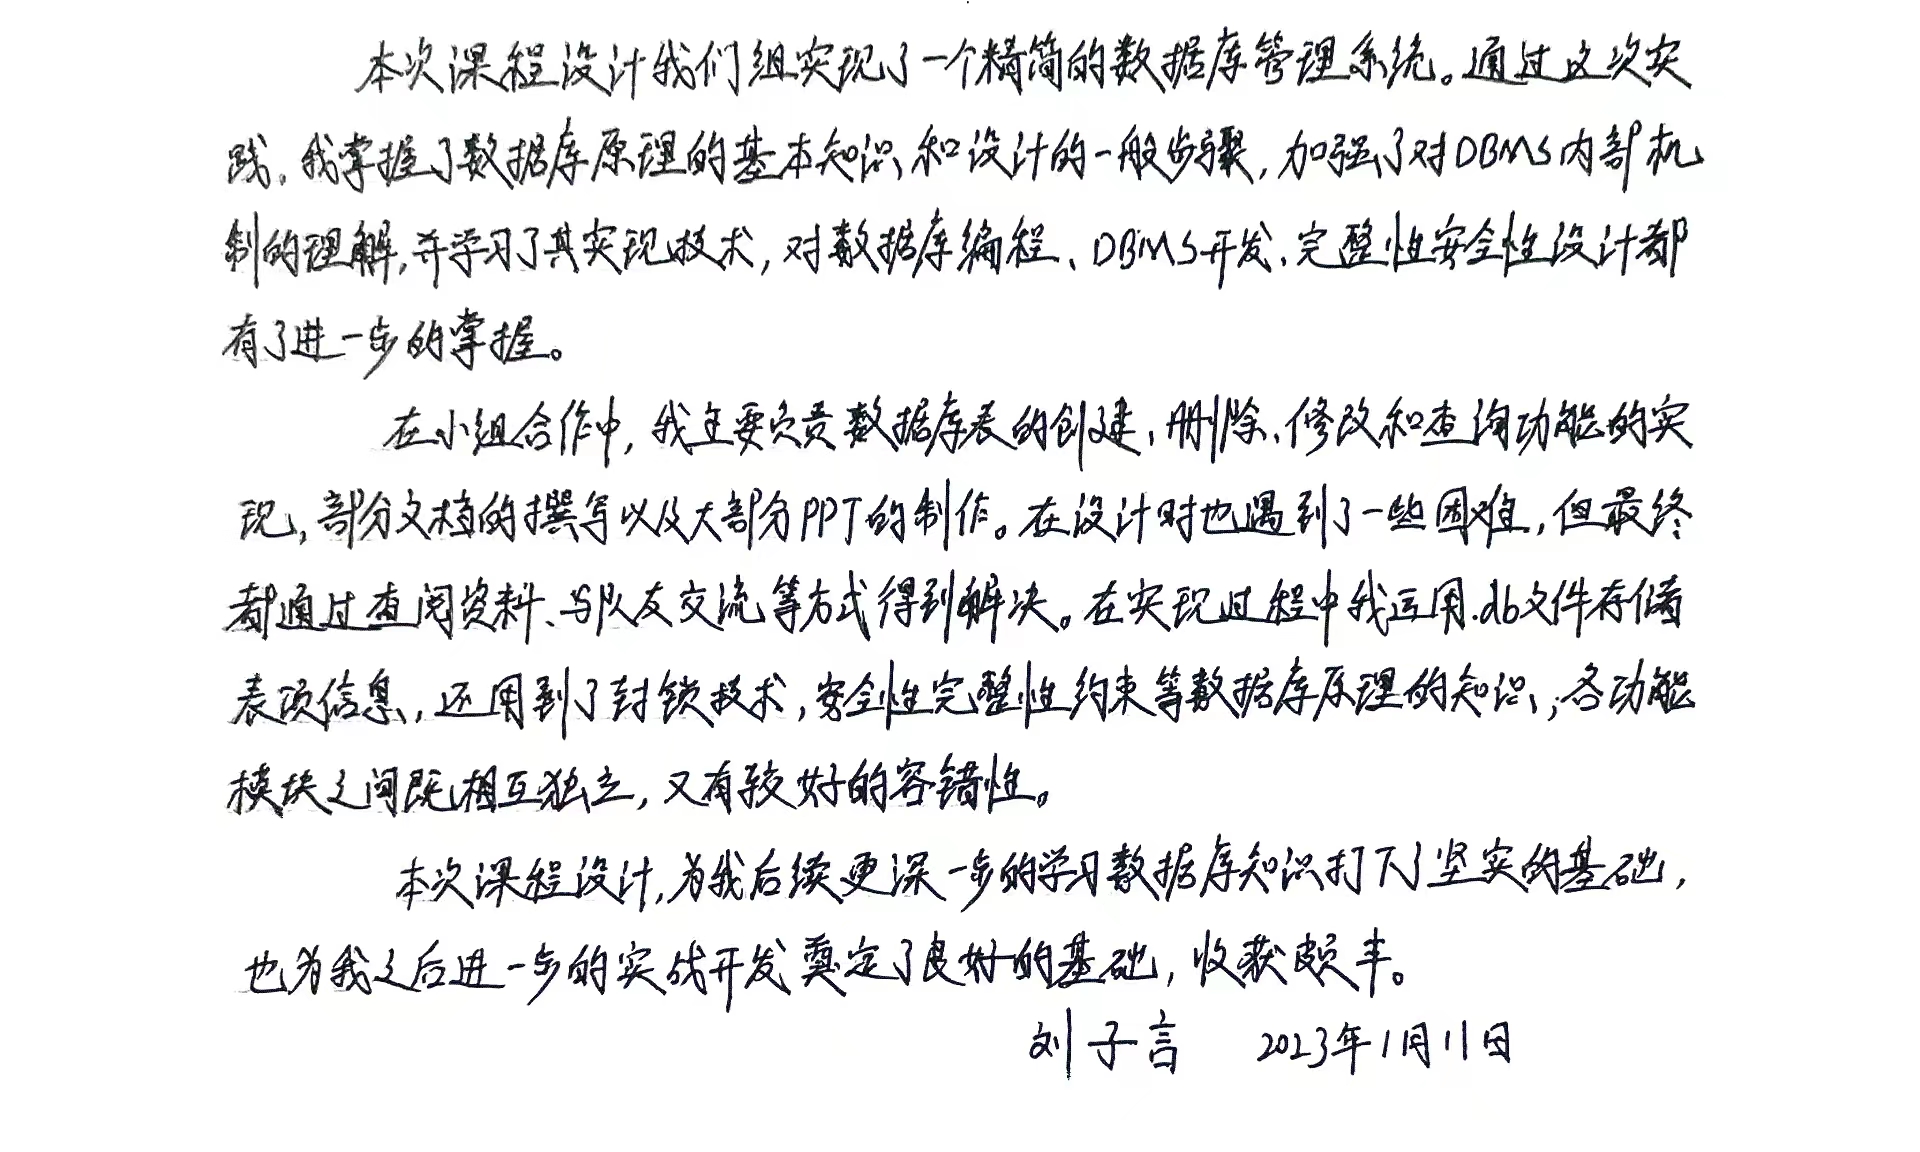 本次课程设计我们组实现了一个精简的数据库管理系统。通过这次实
践,我掌握了数据库原理的基本知识和设计的一般步骤,加强了对DBMS内部机
制的理解,并学习了其实现技术,对数据库编程、DBMS开发、完整性安全性设计都
有了进一步的掌握。
在小组合作中,我主要负责数据库表的创建、删除、修改和查询功能的实
现,部分文档的撰写以及大部分PPT的制作。在设计时也遇到了一些困难,但最终
都通过查阅资料、与队友交流等方式得到解决。在实现过程中我运用.db文件存储
表项信息,还用到了封锁技术,安全性完整性约束等数据库原理的知识,;各功能
模块之间既相互独立,又有较好的容错性。
本次课程设计,为我后续更深一步的学习数据库知识打下了坚实的基础,
也为我之后进一步的实战开发奠定了良好的基础,收获颇丰。
刘子言 2023年1月11日